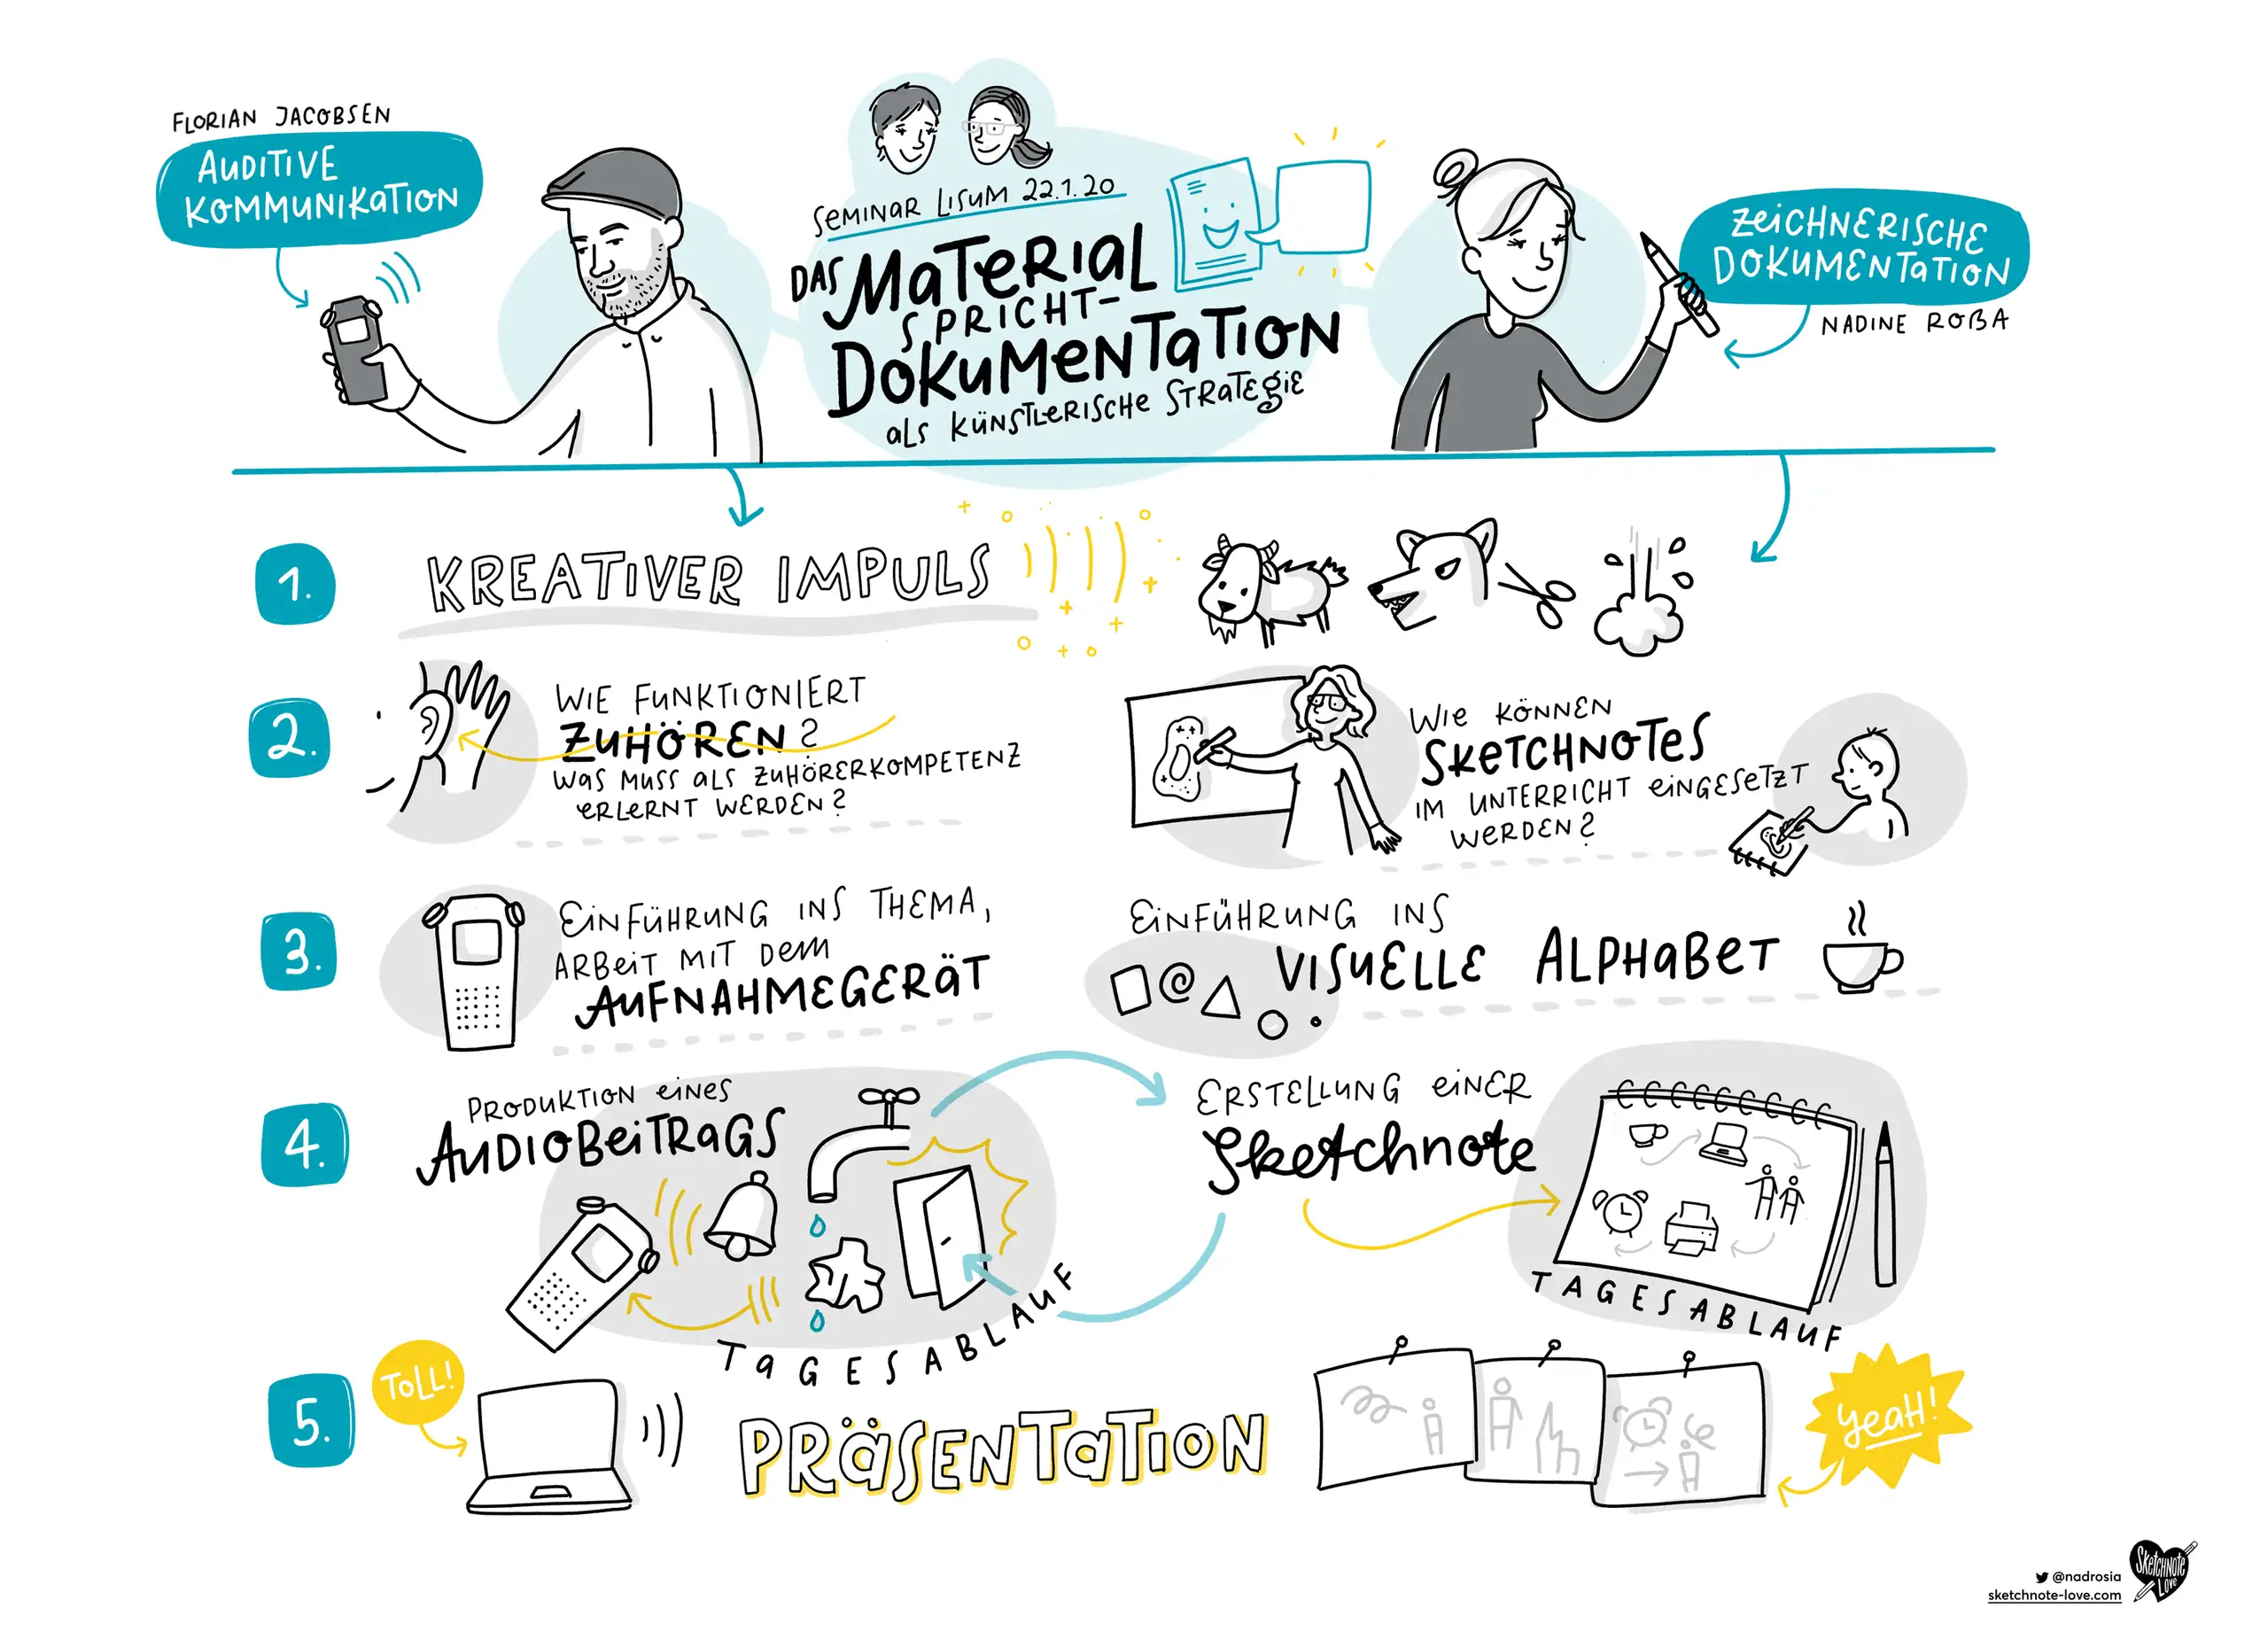 FLORIAN JACOBSEN
AUDITIVE
KOMMUNIKATION
SEMINAR LISUM 22.1.20
DAS MATERIAL
SPRICHT-
DOKUMENTATION
ALS KÜNSTLERISCHE STRATEGIE
ZEICHNERISCHE
DOKUMENTATION
NADINE ROẞA
1.
KREATIVER IMPULS
2.
WIE FUNKTIONIERT
ZUHÖREN?
WAS MUSS ALS ZUHÖRERKOMPETENZ
ERLERNT WERDEN?
WIE KÖNNEN
SKETCHNOTES
IM UNTERRICHT EINGESETZT
WERDEN?
3.
EINFÜHRUNG INS THEMA,
ARBEIT MIT DEM
AUFNAHMEGERÄT
EINFÜHRUNG INS
VISUELLE ALPHABET
4.
PRODUKTION EINES
AUDIOBEITRAGS
TAGESABLAUF
ERSTELLUNG EINER
Sketchnote
TAGESABLAUF
5.
TOLL!
PRÄSENTATION
YEAH!
@nadrosia
sketchnote-love.com
SKETCHNOTE
LOVE